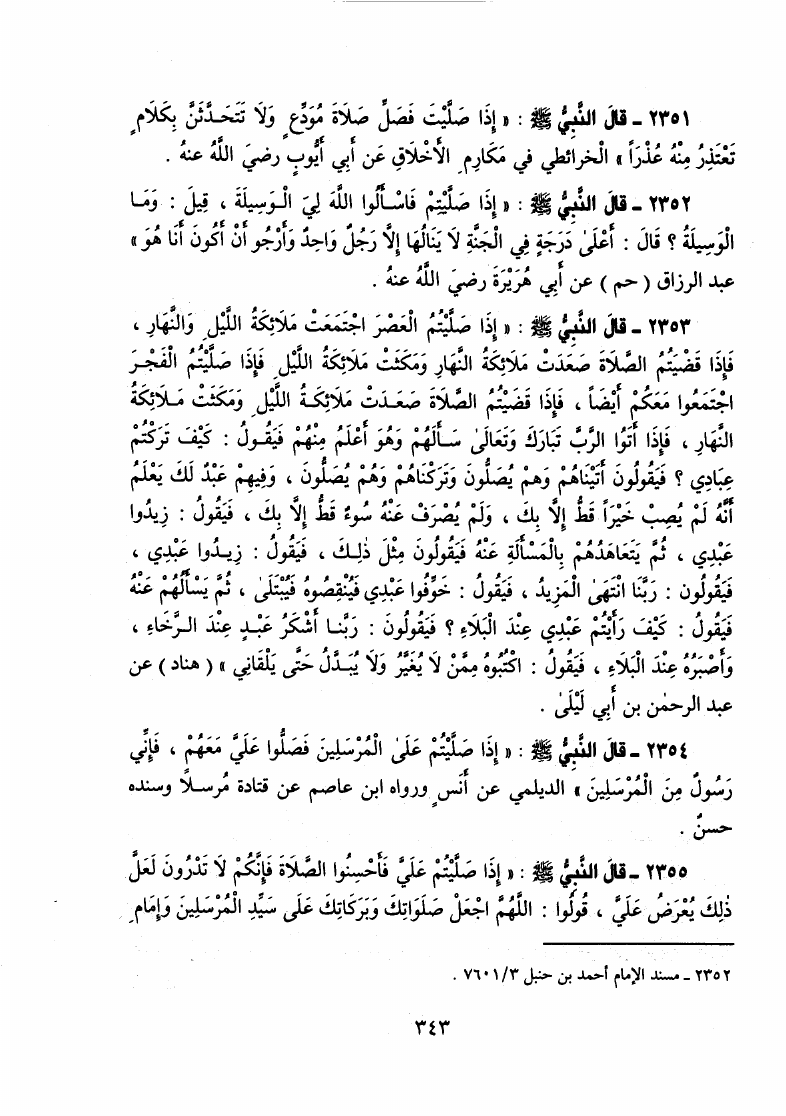 ٢٣٥١ - قَالَ النَّبِيُّ ﷺ : « إِذَا صَلَّيْتَ فَصَلِّ صَلَاةَ مُوَدِّعٍ وَلَا تَتَحَدَّثَنَّ بِكَلَامٍ
تَعْتَذِرُ مِنْهُ عُذْراً » الْخرائطي في مَكَارِمِ الْأَخْلَاقِ عَن أَبي أَيُّوبٍ رضيَ اللَّهُ عنهُ .
٢٣٥٢ - قَالَ النَّبِيُّ ﷺ : « إِذَا صَلَّيْتُمْ فَاسْأَلُوا اللَّهَ لِيَ الْوَسِيلَةَ ، قِيلَ : وَمَا
الْوَسِيلَةُ ؟ قَالَ : أَعْلَى دَرَجَةٍ فِي الْجَنَّةِ لَا يَنَالُهَا إِلَّا رَجُلٌ وَاحِدٌ وَأَرْجُو أَنْ أَكُونَ أَنَا هُوَ »
عبد الرزاق ( حم ) عن أَبي هُرَيْرَةَ رضيَ اللَّهُ عنهُ .
٢٣٥٣ - قَالَ النَّبِيُّ ﷺ : « إِذَا صَلَّيْتُمُ الْعَصْرَ اجْتَمَعَتْ مَلَائِكَةُ اللَّيْلِ وَالنَّهَارِ ،
فَإِذَا قَضَيْتُمُ الصَّلَاةَ صَعَدَتْ مَلَائِكَةُ النَّهَارِ وَمَكَثَتْ مَلَائِكَةُ اللَّيْلِ فَإِذَا صَلَّيْتُمُ الْفَجْرَ
اجْتَمَعُوا مَعَكُمْ أَيْضَاً ، فَإِذَا قَضَيْتُمُ الصَّلَاةَ صَعَدَتْ مَلَائِكَةُ اللَّيْلِ وَمَكَثَتْ مَلَائِكَةُ
النَّهَارِ ، فَإِذَا أَتَوُا الرَّبَّ تَبَارَكَ وَتَعَالَىٰ سَأَلَهُمْ وَهُوَ أَعْلَمُ مِنْهُمْ فَيَقُولُ : كَيْفَ تَرَكْتُمْ
عِبَادِي ؟ فَيَقُولُونَ أَتَيْنَاهُمْ وَهمْ يُصَلُّونَ وَتَرَكْنَاهُمْ وَهُمْ يُصَلُّونَ ، وَفِيهِمْ عَبْدٌ لَكَ يَعْلَمُ
أَنَّهُ لَمْ يُصِبْ خَيْراً قَطُّ إِلَّا بِكَ ، وَلَمْ يُصْرَفْ عَنْهُ سُوءٌ قَطُّ إِلَّا بِكَ ، فَيَقُولُ : زِيدُوا
عَبْدِي ، ثُمَّ يَتَعَاهَدُهُمْ بِالْمَسْأَلَةِ عَنْهُ فَيَقُولُونَ مِثْلَ ذٰلِكَ ، فَيَقُولُ : زِيدُوا عَبْدِي ،
فَيَقُولُونَ : رَبَّنَا انْتَهَىٰ الْمَزِيدُ ، فَيَقُولُ : خَوِّفُوا عَبْدِي فَيُنْقِصُوهُ فَيُبْتَلَىٰ ، ثُمَّ يَسْأَلُهُمْ عَنْهُ
فَيَقُولُ : كَيْفَ رَأَيْتُمْ عَبْدِي عِنْدَ الْبَلَاءِ ؟ فَيَقُولُونَ : رَبَّنَا أَشْكَرُ عَبْدٍ عِنْدَ الرَّخَاءِ ،
وَأَصْبَرُهُ عِنْدَ الْبَلَاءِ ، فَيَقُولُ : اكْتُبُوهُ مِمَّنْ لَا يُغَيَّرُ وَلَا يُبَدَّلُ حَتَّى يَلْقَانِي » ( هناد ) عن
عبد الرحمٰن بن أَبي لَيْلَىٰ .
٢٣٥٤ - قَالَ النَّبِيُّ ﷺ : « إِذَا صَلَّيْتُمْ عَلَىٰ الْمُرْسَلِينَ فَصَلُّوا عَلَيَّ مَعَهُمْ ، فَإِنِّي
رَسُولٌ مِنَ الْمُرْسَلِينَ » الديلمي عن أَنَس ورواه ابن عاصم عن قتادة مُرسلاً وسنده
حسنٌ .
٢٣٥٥ - قَالَ النَّبِيُّ ﷺ : « إِذَا صَلَّيْتُمْ عَلَيَّ فَأَحْسِنُوا الصَّلَاةَ فَإِنَّكُمْ لَا تَدْرُونَ لَعَلَّ
ذٰلِكَ يُعْرَضُ عَلَيَّ ، قُولُوا : اللَّهُمَّ اجْعَلْ صَلَوَاتِكَ وَبَرَكَاتِكَ عَلَى سَيِّدِ الْمُرْسَلِينَ وَإِمَامِ
٢٣٥٢ - مسند الإمام أحمد بن حنبل ٧٦٠١/٣ .
٣٤٣